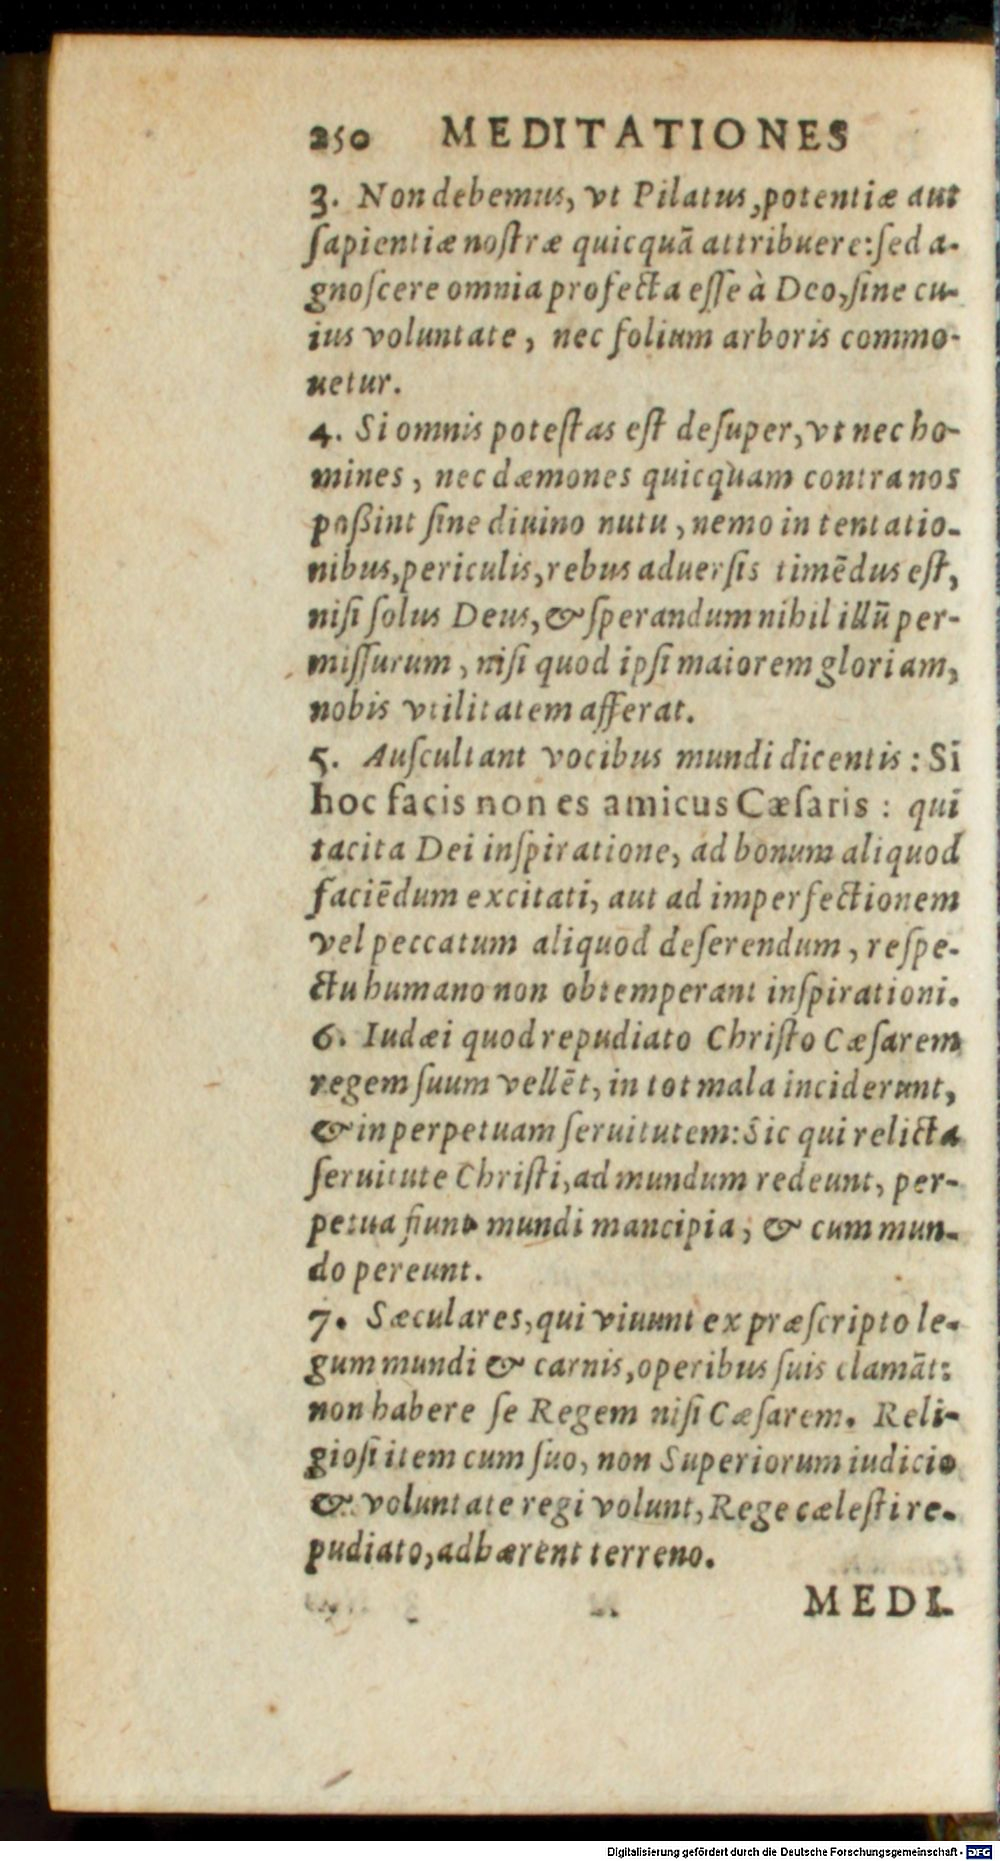 250 MEDITATIONES
3. Non debemus, vt Pilatus, potentiæ aut
ſapientiæ noſtræ quicquã attribuere: ſed a-
gnoſcere omnia profecta eſſe à Deo, ſine cu-
ius voluntate, nec folium arboris commo-
uetur.
4. Si omnis poteſtas eſt deſuper, vt nec ho-
mines, nec dæmones quicquam contra nos
poßint ſine diuino nutu, nemo in tentatio-
nibus, periculis, rebus aduerſis timẽdus eſt,
niſi ſolus Deus, & ſperandum nihil illũ per-
miſſurum, niſi quod ipſi maiorem gloriam,
nobis vtilitatem afferat.
5. Auſcultant vocibus mundi dicentis: Si
hoc facis non es amicus Cæſaris: qui
tacita Dei inſpiratione, ad bonum aliquod
faciẽdum excitati, aut ad imperfectionem
vel peccatum aliquod deſerendum, reſpe-
ctu humano non obtemperant inſpirationi.
6. Iudæi quod repudiato Chriſto Cæſarem
regem ſuum vellẽt, in tot mala inciderunt,
& in perpetuam ſeruitutem: Sic qui relicta
ſeruitute Chriſti, ad mundum redeunt, per-
petua fiunt mundi mancipia, & cum mun-
do pereunt.
7. Sæculares, qui viuunt ex præſcripto le-
gum mundi & carnis, operibus ſuis clamãt:
non habere ſe Regem niſi Cæſarem. Reli-
gioſi item cum ſuo, non Superiorum iudicio
& voluntate regi volunt, Rege cæleſti re-
pudiato, adhærent terreno.
MEDI-
Digitalisierung gefördert durch die Deutsche Forschungsgemeinschaft - DFG